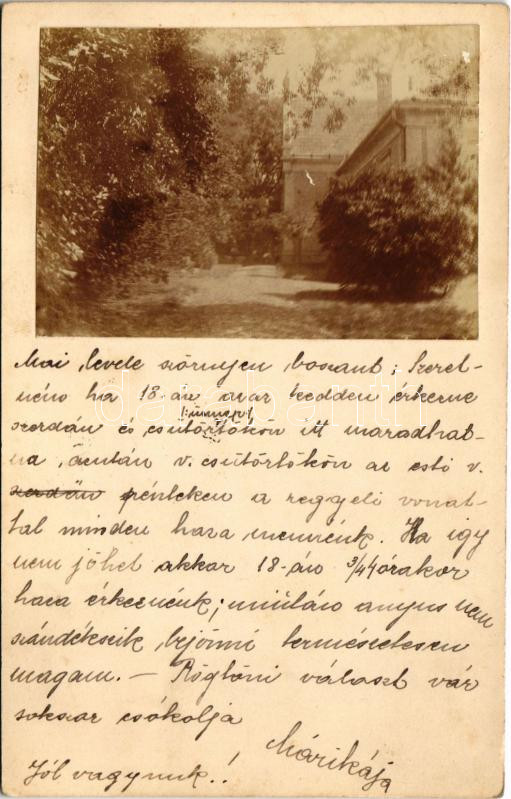 Mai levele szörnyen boszant; szeret-
ném ha 18-án már kedden érkezne
/:ünnep:/
szerdán és csütörtökön itt maradhat-
na, azután v. csütörtökön az esti v.
szerdán pénteken a reggeli vonat-
tal minden haza mennénk. Ha így
nem jöhet akkor 18-án 3/4 4 órakor
haza érkeznénk; miután anyus nem
szándékszik bejönni természetesen
magam. — Rögtöni választ vár
sokszor csókolja
Márikája
Jól vagyunk.!
darabanth